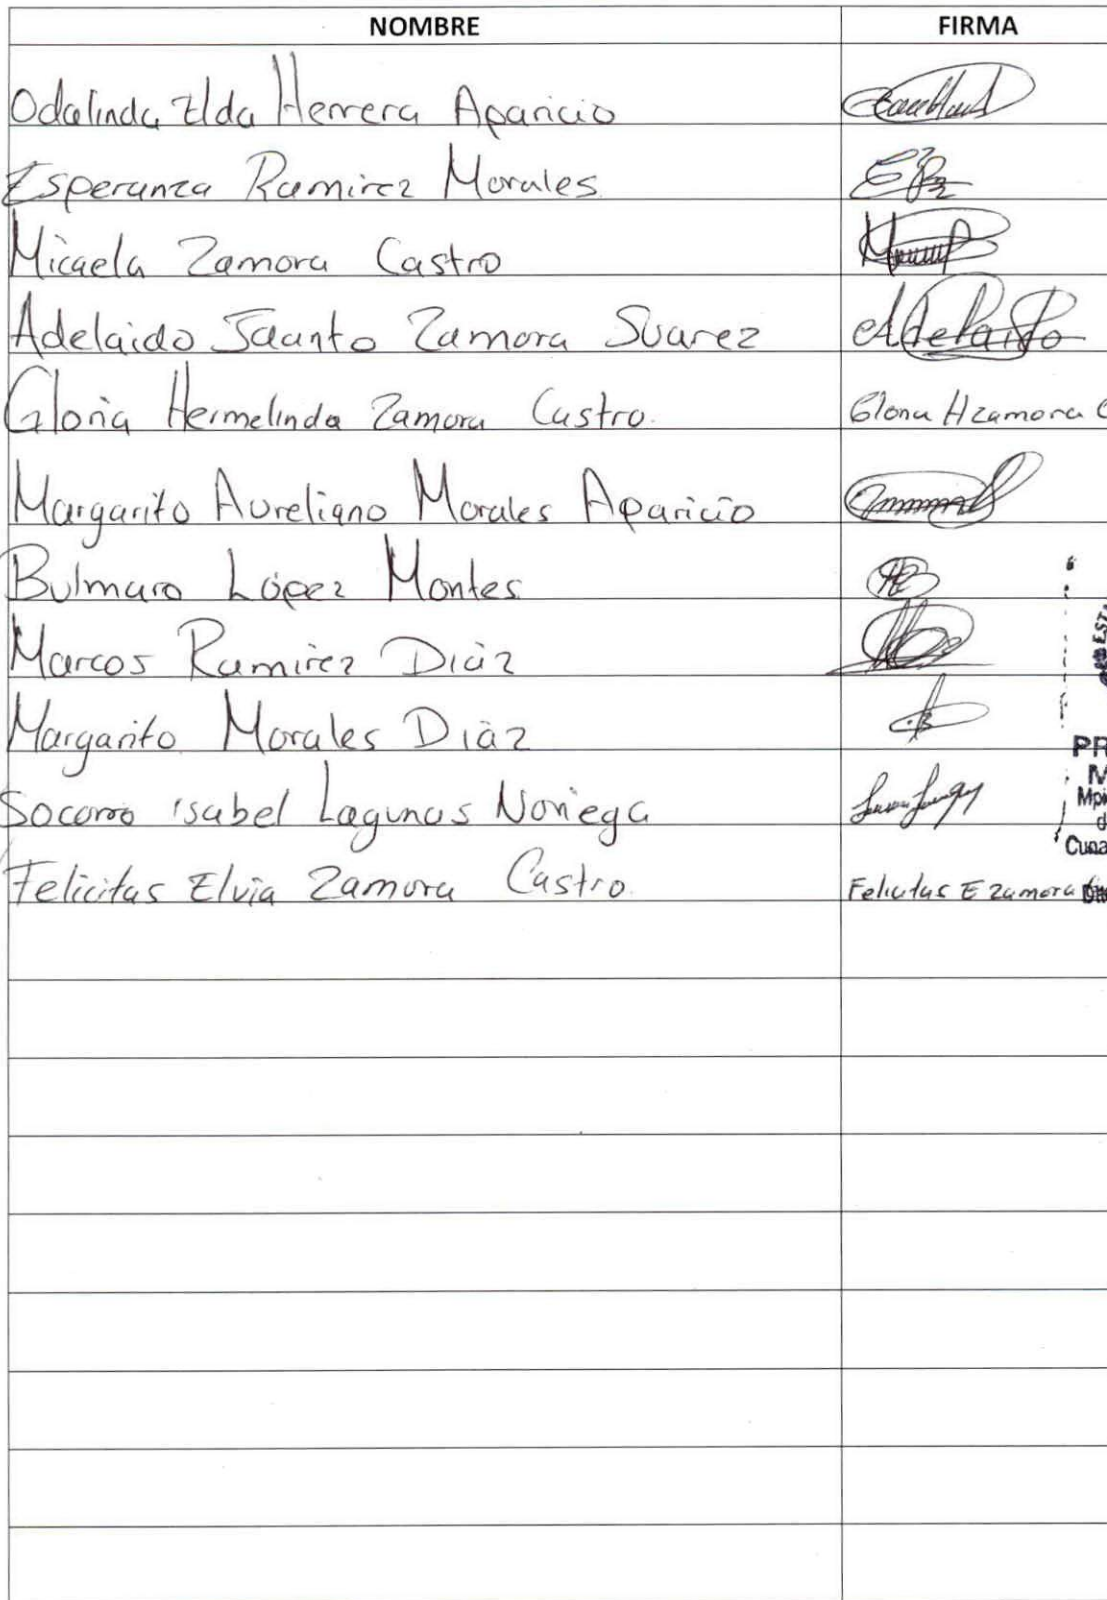 NOMBRE FIRMA
Odalinda Elda Herrera Aparicio
Esperanza Ramirez Morales
Micaela Zamora Castro
Adelaido Jacinto Zamora Suarez Adelaido
Gloria Hermelinda Zamora Castro. Gloria H Zamora C
Margarito Aureliano Morales Aparicio
Bulmaro López Montes
Marcos Ramirez Diáz
Margarito Morales Diáz
Socorro isabel Lagunas Noriega
Felicitas Elvia Zamora Castro. Felicitas E Zamora
EST
PR
M
Mpi
d
Cuna